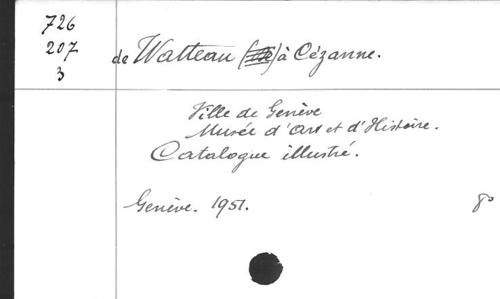 726
207
3
de Watteau () à Cézanne.
Ville de Genève
Musée d'Art et d'Histoire.
Catalogue illustré.
Genève. 1951. 8°